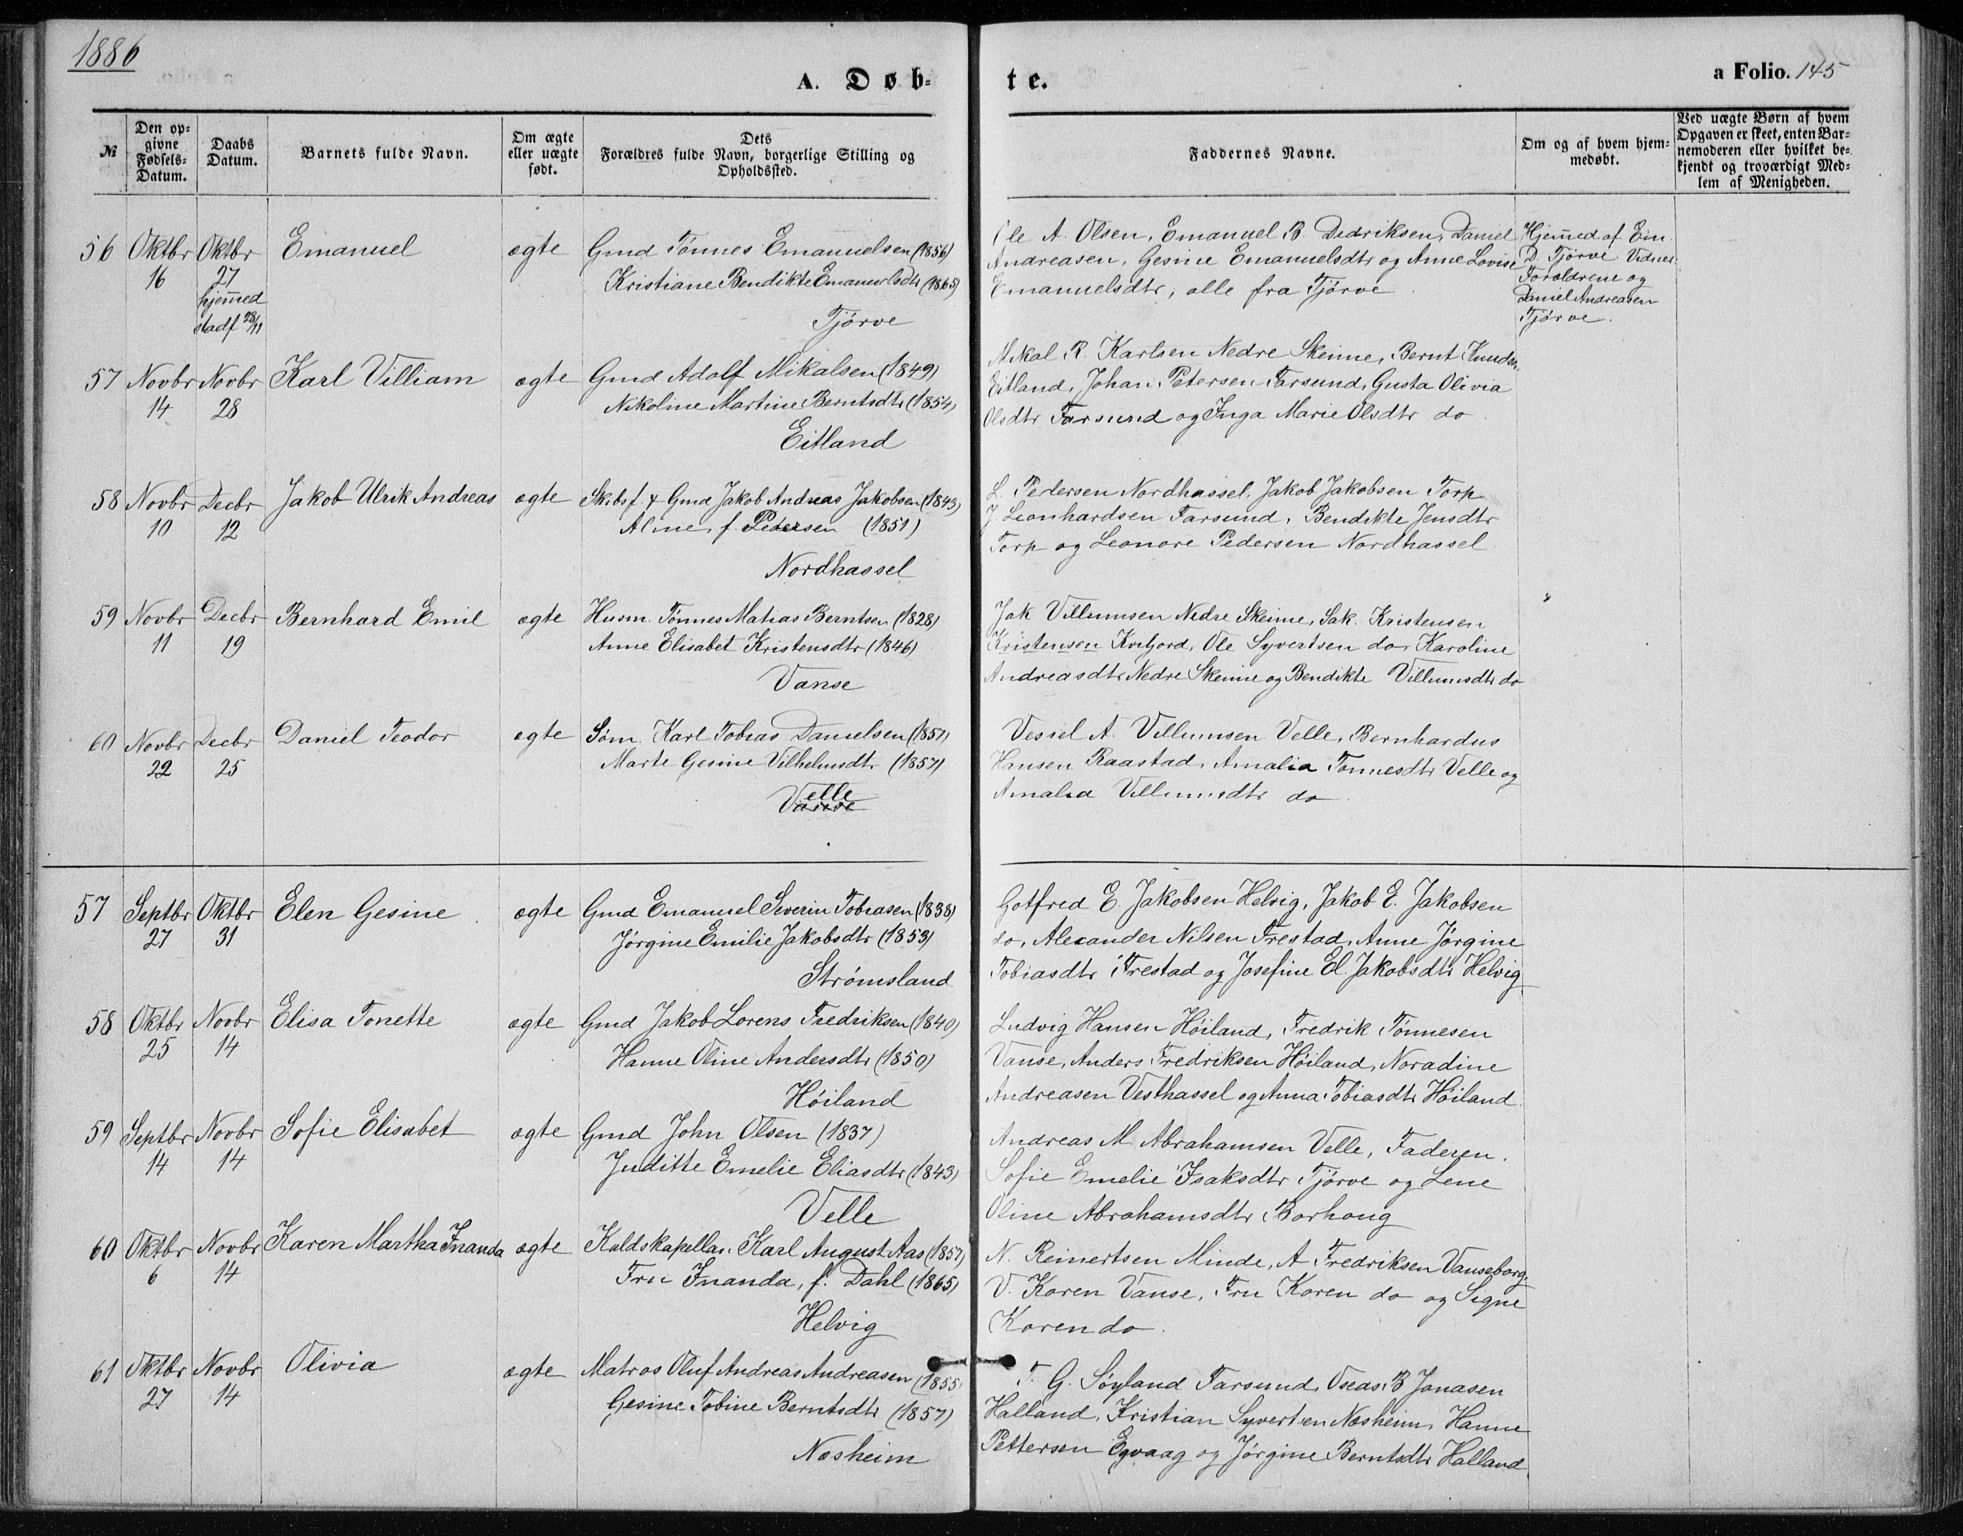 1886
A. Døb-
te.
a Folio. 145
№
Den opgivne Fødsels-Datum.
Daabs Datum.
Barnets fulde Navn.
Om ægte eller uægte født.
Dets Forældres fulde Navn, borgerlige Stilling og Opholdssted.
Faddernes Navne.
Om og af hvem hjemmedøbt.
Ved uægte Børn af hvem Opgaven er skeet, enten Barnemoderen eller hvilket bekjendt og troværdigt Medlem af Menigheden.
56 Oktbr Oktbr Emanuel ægte Gmd Tønnes Emanuelsen (1856)
16 27 Kristiane Bendikte Emanuelsdtr (1865)
hjemmed
stadf 28/11 Tjørve
Ole A. Olsen, Emanuel B. Dedriksen, Daniel
Andreasen, Gesine Emanuelsdtr og Anne Lovise
Emanuelsdtr, alle fra Tjørve
Hjemmed af Em.
D. Tjørve Vidner
Forældrene og
Daniel Andreasen
Tjørve.
57 Novbr Novbr Karl Villiam ægte Gmd Adolf Mikalsen (1849)
14 28 Nikoline Martine Berntsdtr (1854)
Eitland
Mikal R. Karlsen Nedre Skeime, Bernt Knudsen
Eitland, Johan Petersen Farsund, Gusta Olivia
Olsdtr Farsund og Inga Marie Olsdtr do
58 Novbr Decbr Jakob Ulrik Andreas ægte Skibsf. & Gmd Jakob Andreas Jakobsen (1843)
10 12 Aline, f. Pedersen (1851)
Nordhassel
L. Pedersen Nordhassel, Jakob Jakobsen Torp
J Leonhardsen Farsund, Bendikte Jensdtr
Torp og Leonore Pedersen Nordhassel
59 Novbr Decbr Bernhard Emil ægte Husm. Tønnes Matias Berntsen (1828)
11 19 Anne Elisabet Kristensdtr (1846)
Vanse
Jak Villumsen Nedre Skeime, Sak. Kristensen
Kristensen Kviljord, Ole Syvertsen do, Karoline
Andreasdtr Nedre Skeime og Bendikte Villumsdtr do
60 Novbr Decbr Daniel Teodor ægte Søm. Karl Tobias Danielsen (1857)
22 25 Marte Gesine Vilhelmsdtr (1857)
Velle
Vessel A. Villumsen Velle, Bernhardus
Hansen Raastad, Amalia Tønnesdtr Velle og
Amalia Villumsdtr do
57 Septbr Oktbr Elen Gesine ægte Gmd Emanuel Severin Tobiasen (1838)
27 31 Jørgine Emilie Jakobsdtr (1853)
Strømsland
Gotfred E. Jakobsen Helvig, Jakob E. Jakobsen
do, Alexander Nilsen Frestad, Anne Jørgine
Tobiasdtr Frestad og Josefine El. Jakobsdtr Helvig
58 Oktbr Novbr Elisa Tonette ægte Gmd Jakob Lorens Fredriksen (1840)
25 14 Hanne Oline Andersdtr (1850)
Høiland
Ludvig Hansen Høiland, Fredrik Tønnesen
Vanse, Anders Fredriksen Høiland, Noradine
Andreasen Vesthassel og Anna Tobiasdtr Høiland
59 Septbr Novbr Sofie Elisabet ægte Gmd John Olsen (1837)
14 14 Juditte Emelie Eliasdtr (1843)
Velle
Andreas M. Abrahamsen Velle, Faderen.
Sofie Emelie Isaksdtr Tjørve og Lene
Oline Abrahamsdtr Borhaug
60 Oktbr Novbr Karen Martha Inanda ægte Kaldskapellan Karl August Aas (1857)
6 14 Fru Inanda, f. Dahl (1865)
Helvig
N. Reinertsen Minde, A Fredriksen Vanseborg
V. Koren Vanse, Fru Koren do og Signe
Koren do.
61 Oktbr Novbr Olivia ægte Matros Oluf Andreas Andreasen (1855)
27 14 Gesine Tobine Berntsdtr (1857)
Nesheim
T. G. Søyland Farsund, Oseas B Jonasen
Halland, Kristian Syvertsen Nesheim, Hanne
Pettersen Egvaag og Jørgine Berntsdtr Halland